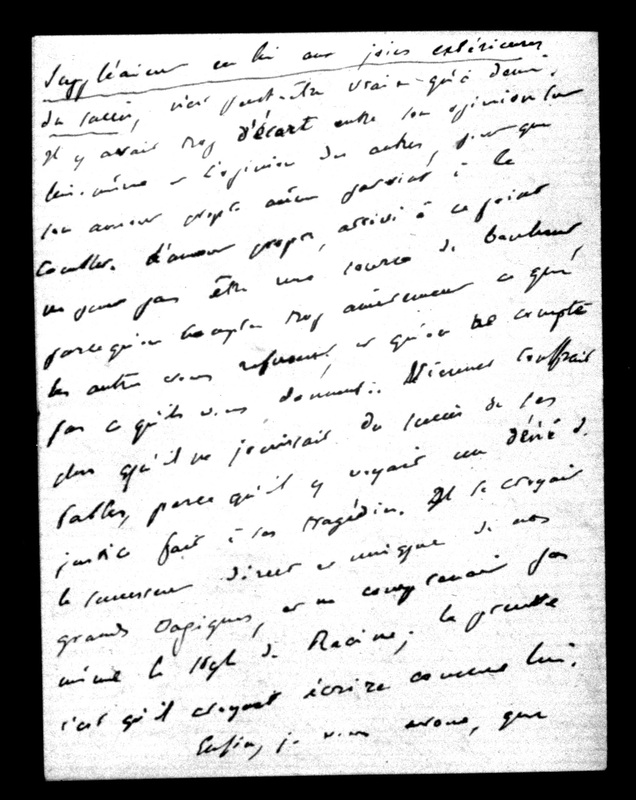 suppléaient en lui aux joies extérieures
du succès, n'est peut-être vraie qu'à demi.
Il y avait trop d'écart entre son opinion sur
lui-même et l'opinion des autres, pour que
son amour propre même parvint à le
combler. L'amour propre, arrivé à ce point
ne peut pas être une source de bonheur
parce qu'on compte trop amèrement ce que
les autres vous refusent, et qu'on ne compte
pas ce qu'ils vous donnent. Viennet souffrait
plus qu'il ne jouissait du succès de ses
fables, parce qu'il y voyait un déni de
justice fait à ses tragédies. Il se croyait
le successeur direct et unique de nos
grands tragiques, et ne comprenait pas
même le style de Racine; la preuve
c'est qu'il croyait écrire comme lui.
Enfin, je vous avoue, que